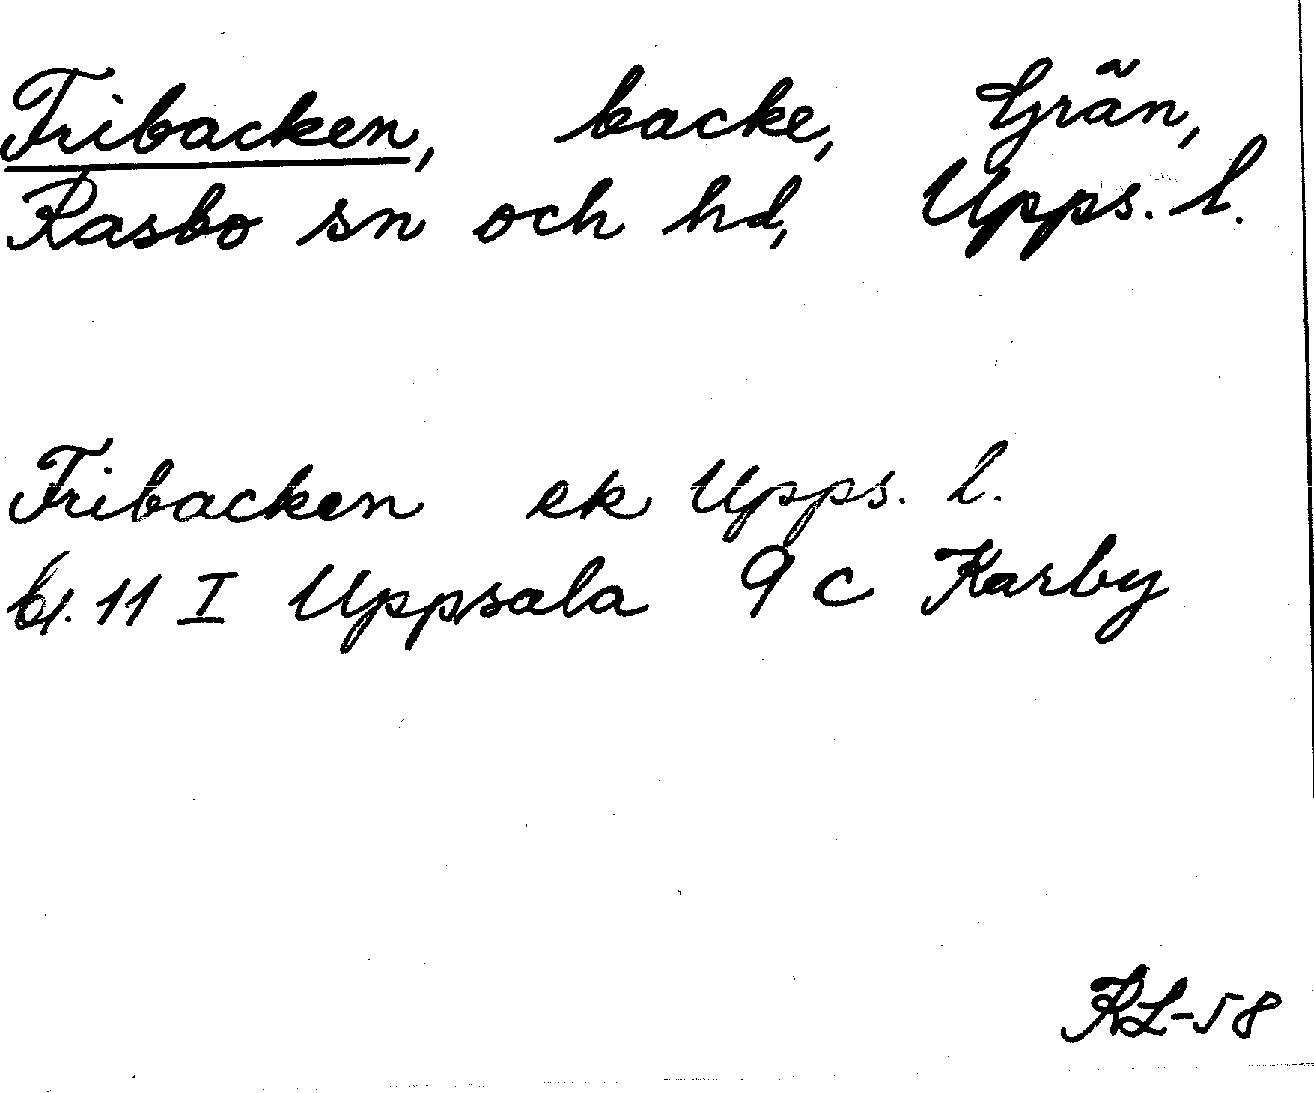 Fribacken, backe, Grän,
Rasbo sn och hd, Upps. l.
Fribacken ek Upps. l.
bl. 11 I Uppsala 9 c Karby
RL-58